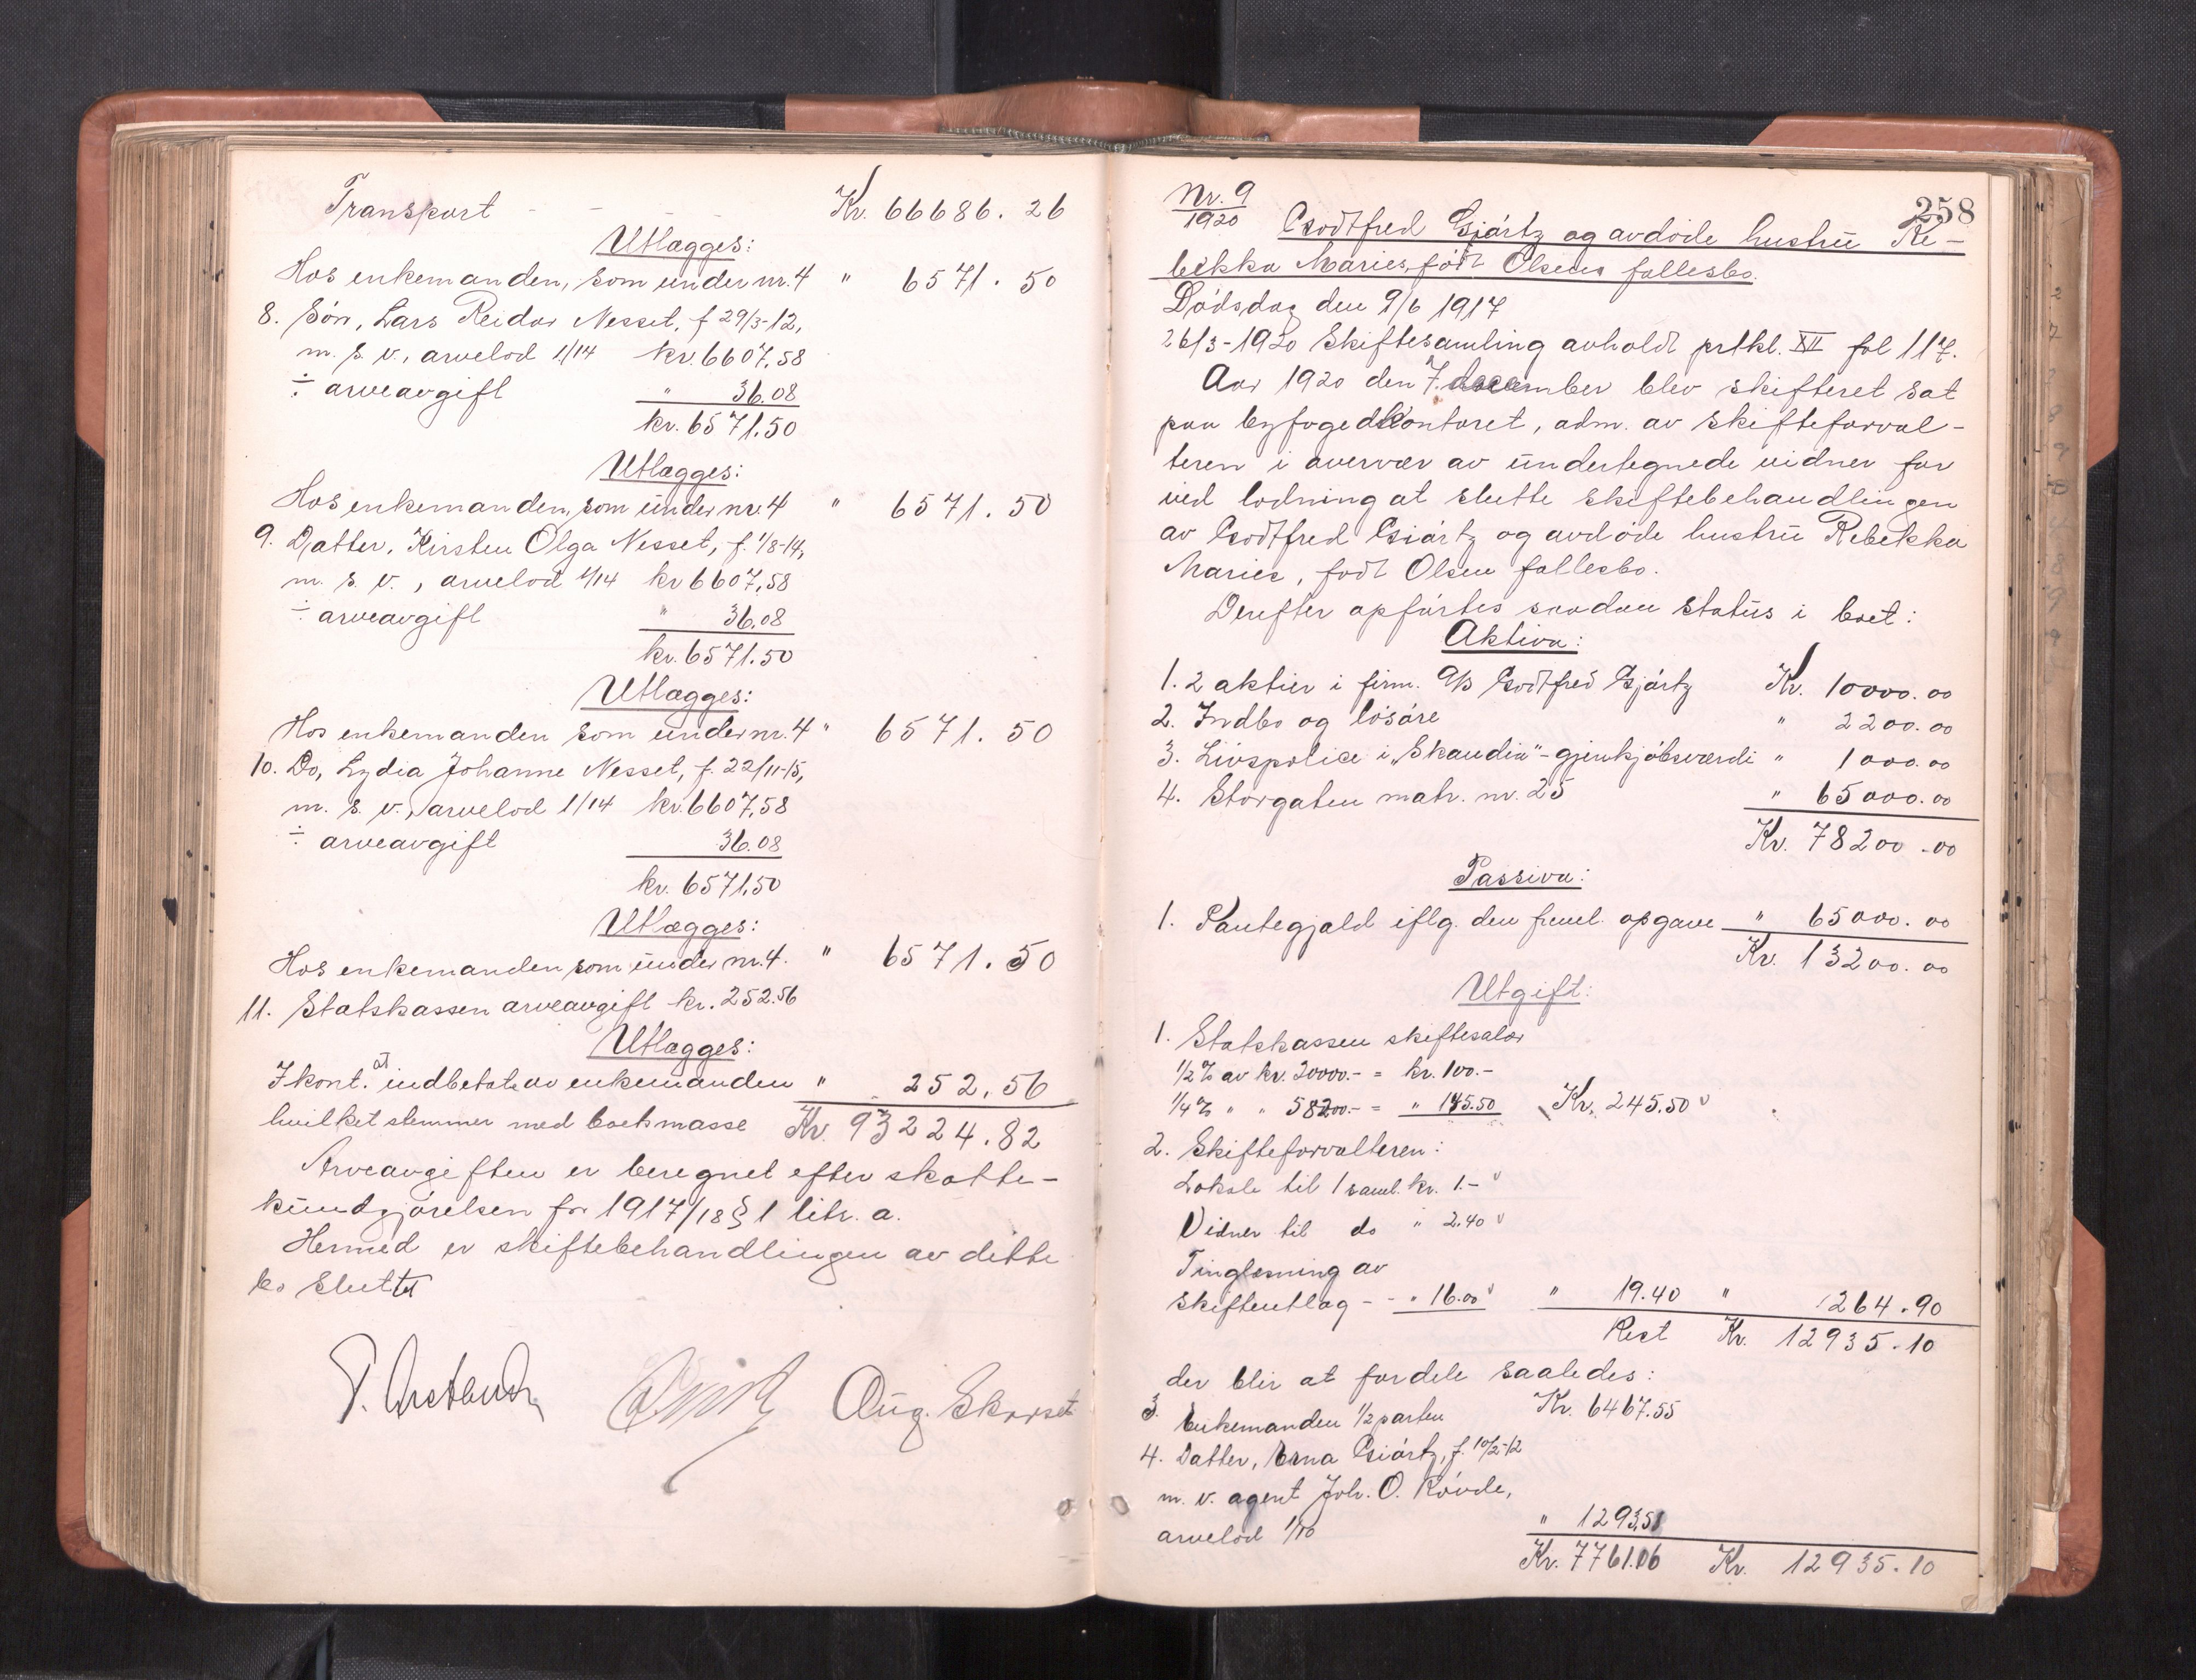 Transport - - - Kr. 66686.26
Utlægges:
Hos enkemanden, som under nr. 4 " 6571.50
8. Søn, Lars Reidar Nesset, f 29/3-12,
m. s. v., arvelod 1/14 kr. 6607,58
÷ arveavgift " 36.08
kr. 6571.50
Utlægges:
Hos enkemanden, som under nr. 4 " 6571.50
9. Datter, Kirsten Olga Nesset, f. 1/8-14,
m. s. v., arvelod 1/14 kr 6607,58
÷ arveavgift " 36.08
kr. 6571.50
Utlægges:
Hos enkemanden som under nr. 4 " 6571.50
10. Do, Lydia Johanne Nesset, f. 22/11-15,
m. s. v., arvelod 1/14 kr. 6607,58
÷ arveavgift 36.08
kr. 6571,50
Utlægges:
Hos enkemanden som under nr. 4. " 6571.50
11. Statskassen arveavgift kr. 252.56
Utlægges:
I kont. at indbetale av enkemanden " 252.56
hvilket stemmer med boets masse Kr. 93224.82
Arveavgiften er beregnet efter skatte-
kundgjørelsen for 1917/18 § 1 litr. a.
Hermed er skiftebehandlingen av dette
bo sluttet
Aug. Skorset
258
Nr. 9
1920
Godtfred Gjørtz og avdøde hustru Re-
bekka Maries, født Olsens fællesbo.
Dødsdag den 9/6 1917
26/3-1920 Skiftesamling avholdt prtkl. XII fol 117.
Aar 1920 den 7. december blev skifteret sat
paa byfogedkontoret, adm. av skifteforval-
teren i overvær av undertegnede vidner for
ved lodning at slutte skiftebehandlingen
av Godtfred Gjørtz og avdøde hustru Rebekka
Maries, født Olsen fællesbo.
Derefter opførtes saadan status i boet:
Aktiva:
1. 2 aktier i firm. A/S Godtfred Gjørtz Kr. 10000.00
2. Indbo og løsøre " 2200.00
3. Livspolice i „Skandia" - gjenkjøbsværdi " 1000.00
4. Storgaten matr. nr. 25 " 65000.00
Kr. 78200.00
Passiva:
1. Pantegjæld iflg. den freml. opgave " 65000.00
Kr. 13200.00
Utgift:
1. Statskassen skiftesalær
1/2 % av kr. 20000.- = kr. 100.-
1/4 % " " 58200.- = " 145.50 Kr. 245.50
2. Skifteforvalteren:
Lokale til 1 saml. kr. 1.-
Vidner til do " 2.40
Tinglæsning av
skifteutlæg - - " 16.00 " 19.40 " 264.90
Rest Kr. 12935.10
der blir at fordele saaledes:
3. Enkemanden 1/2 parten Kr. 6467.55
4. Datter, Erna Gjørtz, f. 10/2-12
m. v. agent Joh. O. Røvde,
arvelod 1/10 " 1293,51
Kr. 7761.06 Kr. 12935.10